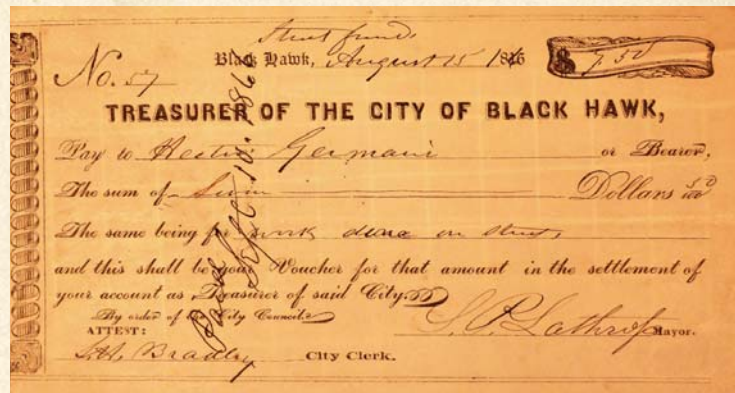 Street fund
No. 57 Black Hawk, August 15 18 $ 7.50
TREASURER OF THE CITY OF BLACK HAWK,
Pay to Germain or Bearer,
The sum of Seven Dollars 50/100
The same being for work done on Street
and this shall be your Voucher for that amount in the settlement of
your account as Treasurer of said City.
By order of the City Council.
ATTEST: Lathrop Mayor.
Bradley City Clerk.
Paid Sept 10.